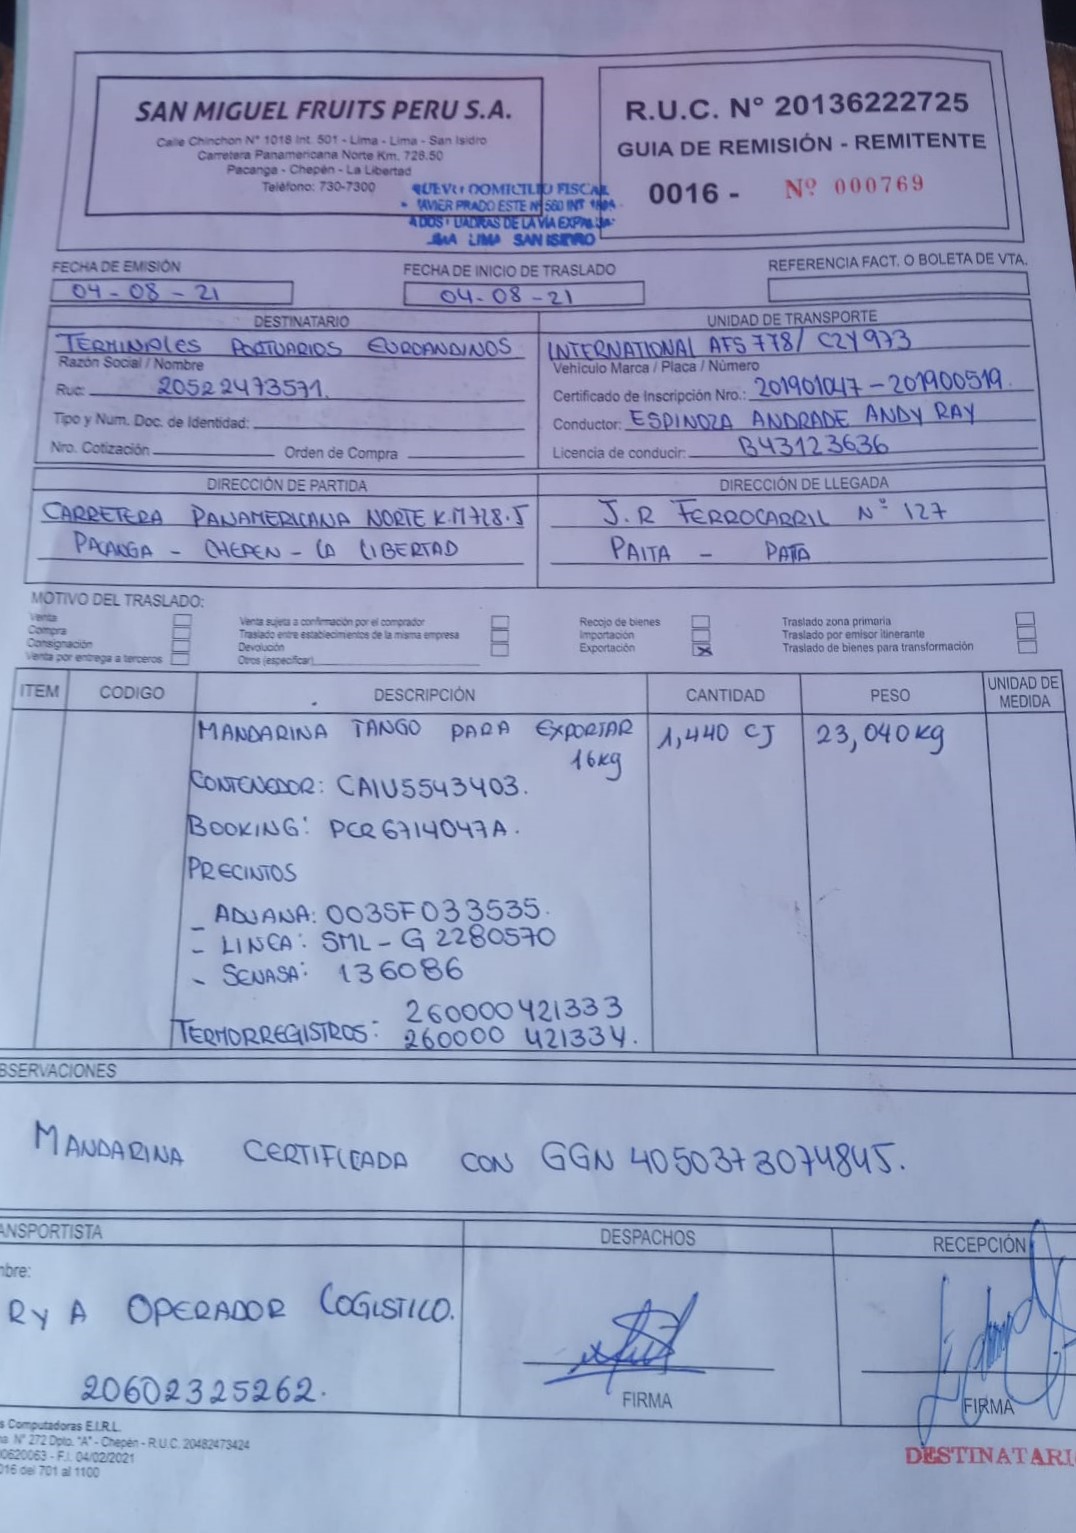 SAN MIGUEL FRUITS PERU S.A.
Calle Chinchon N° 1018 Int. 501 - Lima - Lima - San Isidro
Carretera Panamericana Norte Km. 728.50
Pacanga - Chepén - La Libertad
Teléfono: 730-7300
NUEVO DOMICILIO FISCAL
JAVIER PRADO ESTE N° 560 INT
DE LA VIA EXPRESA
LIMA SAN ISIDRO
R.U.C. N° 20136222725
GUIA DE REMISIÓN - REMITENTE
0016 - Nº 000769
FECHA DE EMISIÓN
04-08-21
FECHA DE INICIO DE TRASLADO
04-08-21
REFERENCIA FACT. O BOLETA DE VTA.
DESTINATARIO
TERMINALES PORTUARIOS EUROANDINOS
Razón Social / Nombre
Ruc: 20522473571.
Tipo y Num. Doc. de Identidad:
Nro. Cotización Orden de Compra
UNIDAD DE TRANSPORTE
INTERNATIONAL AFS 778/ C2Y973
Vehículo Marca / Placa / Número
Certificado de Inscripción Nro.: 201901047-201900519.
Conductor: ESPINOZA ANDRADE ANDY RAY
Licencia de conducir: B43123636
DIRECCIÓN DE PARTIDA
CARRETERA PANAMERICANA NORTE K.M728.5
PACANGA - CHEPEN - LA LIBERTAD
DIRECCIÓN DE LLEGADA
J.R FERROCARRIL N° 127
PAITA - PAITA
MOTIVO DEL TRASLADO:
Venta
Compra
Consignación
Venta por entrega a terceros
Venta sujeta a confirmación por el comprador
Traslado entre establecimientos de la misma empresa
Devolución
Otros (especificar)
Recojo de bienes
Importación
Exportación X
Traslado zona primaria
Traslado por emisor itinerante
Traslado de bienes para transformación
ITEM CODIGO DESCRIPCIÓN CANTIDAD PESO UNIDAD DE MEDIDA
MANDARINA TANGO PARA EXPORTAR 1,440 CJ 23,040kg
16kg
CONTENEDOR: CAIU5543403.
BOOKING: PCR6714047A.
PRECINTOS
- ADUANA: 003SF033535.
- LINEA: SML-G2280570
- SENASA: 136086
260000421333
TERMORREGISTROS: 260000 421334.
BSERVACIONES
MANDARINA CERTIFICADA CON GGN 4050373074845.
ANSPORTISTA
mbre:
R Y A OPERADOR LOGISTICO.
20602325262.
DESPACHOS
FIRMA
RECEPCIÓN
FIRMA
s Computadoras E.I.R.L.
N° 272 Dpto. "A" - Chepén - R.U.C. 20482473424
00620063 - F.I. 04/02/2021
016 del 701 al 1100
DESTINATARI